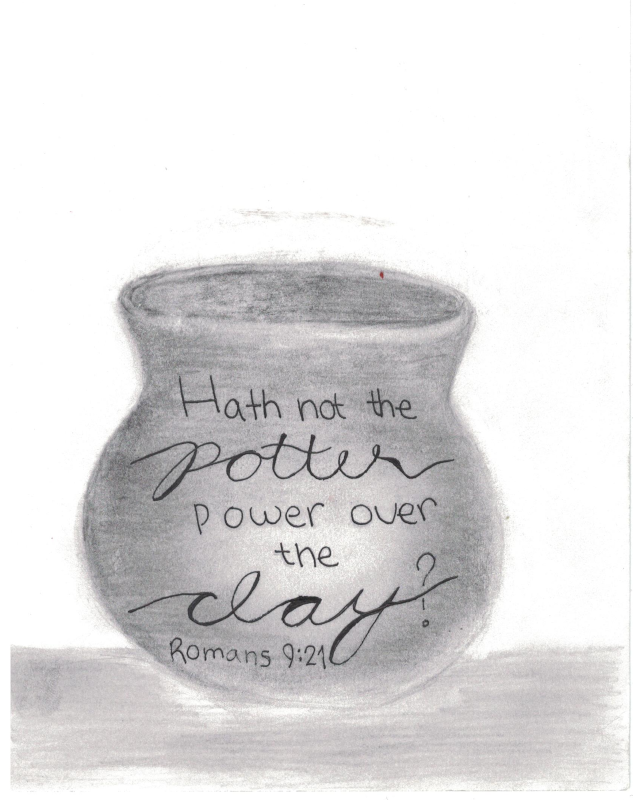 Hath not the
potter
power over
the
clay?
Romans 9:21